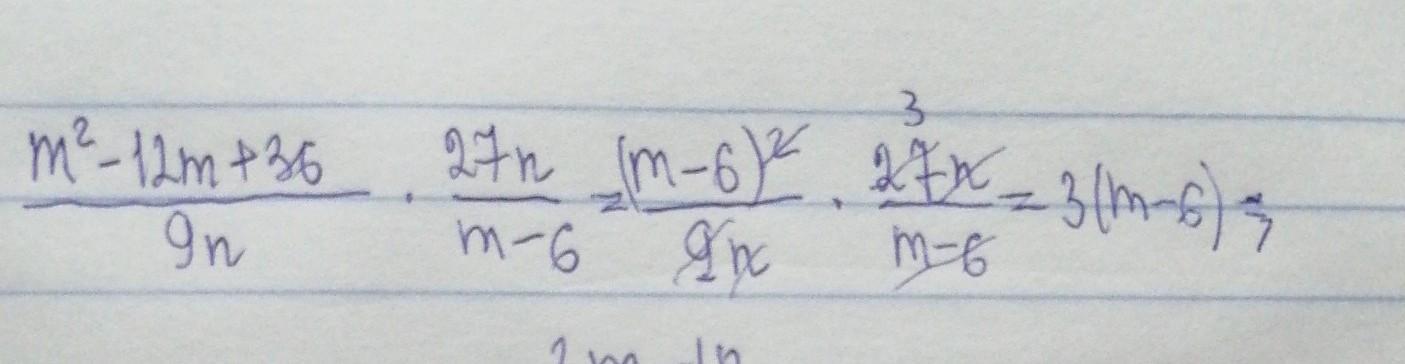 m²-12m+36/9n · 27n/m-6 = (m-6)²/9n · 27n/m-6 = 3(m-6) =
3